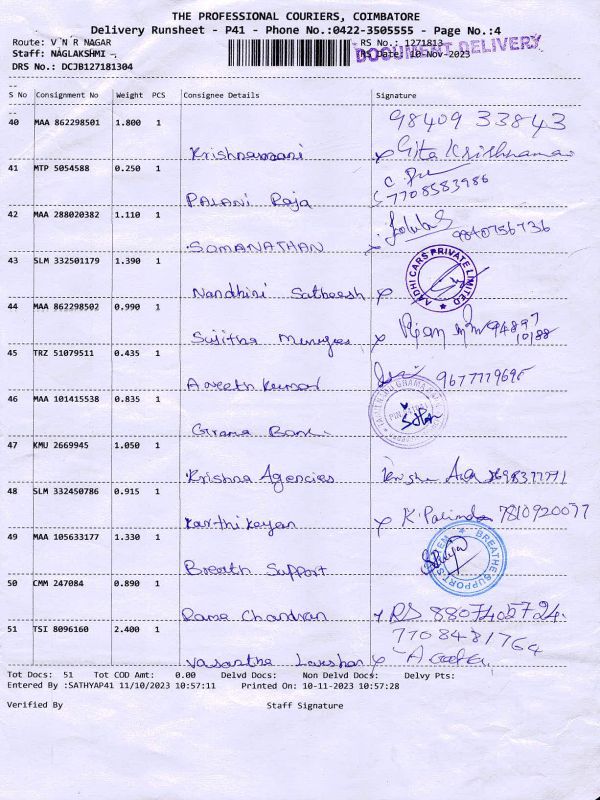 THE PROFESSIONAL COURIERS, COIMBATORE
Delivery Runsheet - P41 - Phone No.:0422-3505555 - Page No.:4
Route: V N R NAGAR
RS No.: 1271813
DOCUMENT DELIVERY
Staff: NAGLAKSHMI -
Date: 10-Nov-2023
DRS No.: DCJB127181304
--
S No Consignment No Weight PCS Consignee Details Signature
--
40 MAA 862298501 1.800 1
98409 33843
Krishnamani Gita Krishnamani
41 MTP 5054588 0.250 1
7708583986
PALANI Raja
42 MAA 288020382 1.110 1
9840756736
SOMANATHAN
43 SLM 332501179 1.390 1
AADHI CARS PRIVATE LIMITED
Nandhini Satheesh
44 MAA 862298502 0.990 1
94897
10188
Sujitha
45 TRZ 51079511 0.435 1
9677779695
Aneeth Kumar
46 MAA 101415538 0.835 1
Grama Bank
47 KMU 2669945 1.050 1
Krishna Agencies
48 SLM 332450786 0.915 1
Karthikeyan 7810920077
49 MAA 105633177 1.330 1
BREATHE SUPPORT SYSTEM
Breath Support
50 CMM 247084 0.890 1
Rama Chandran RS 8807405724
51 TSI 8096160 2.400 1
7708481764
Vasantha
Tot Docs: 51 Tot COD Amt: 0.00 Delvd Docs: Non Delvd Docs: Delvy Pts:
Entered By :SATHYAP41 11/10/2023 10:57:11 Printed On: 10-11-2023 10:57:28
Verified By Staff Signature